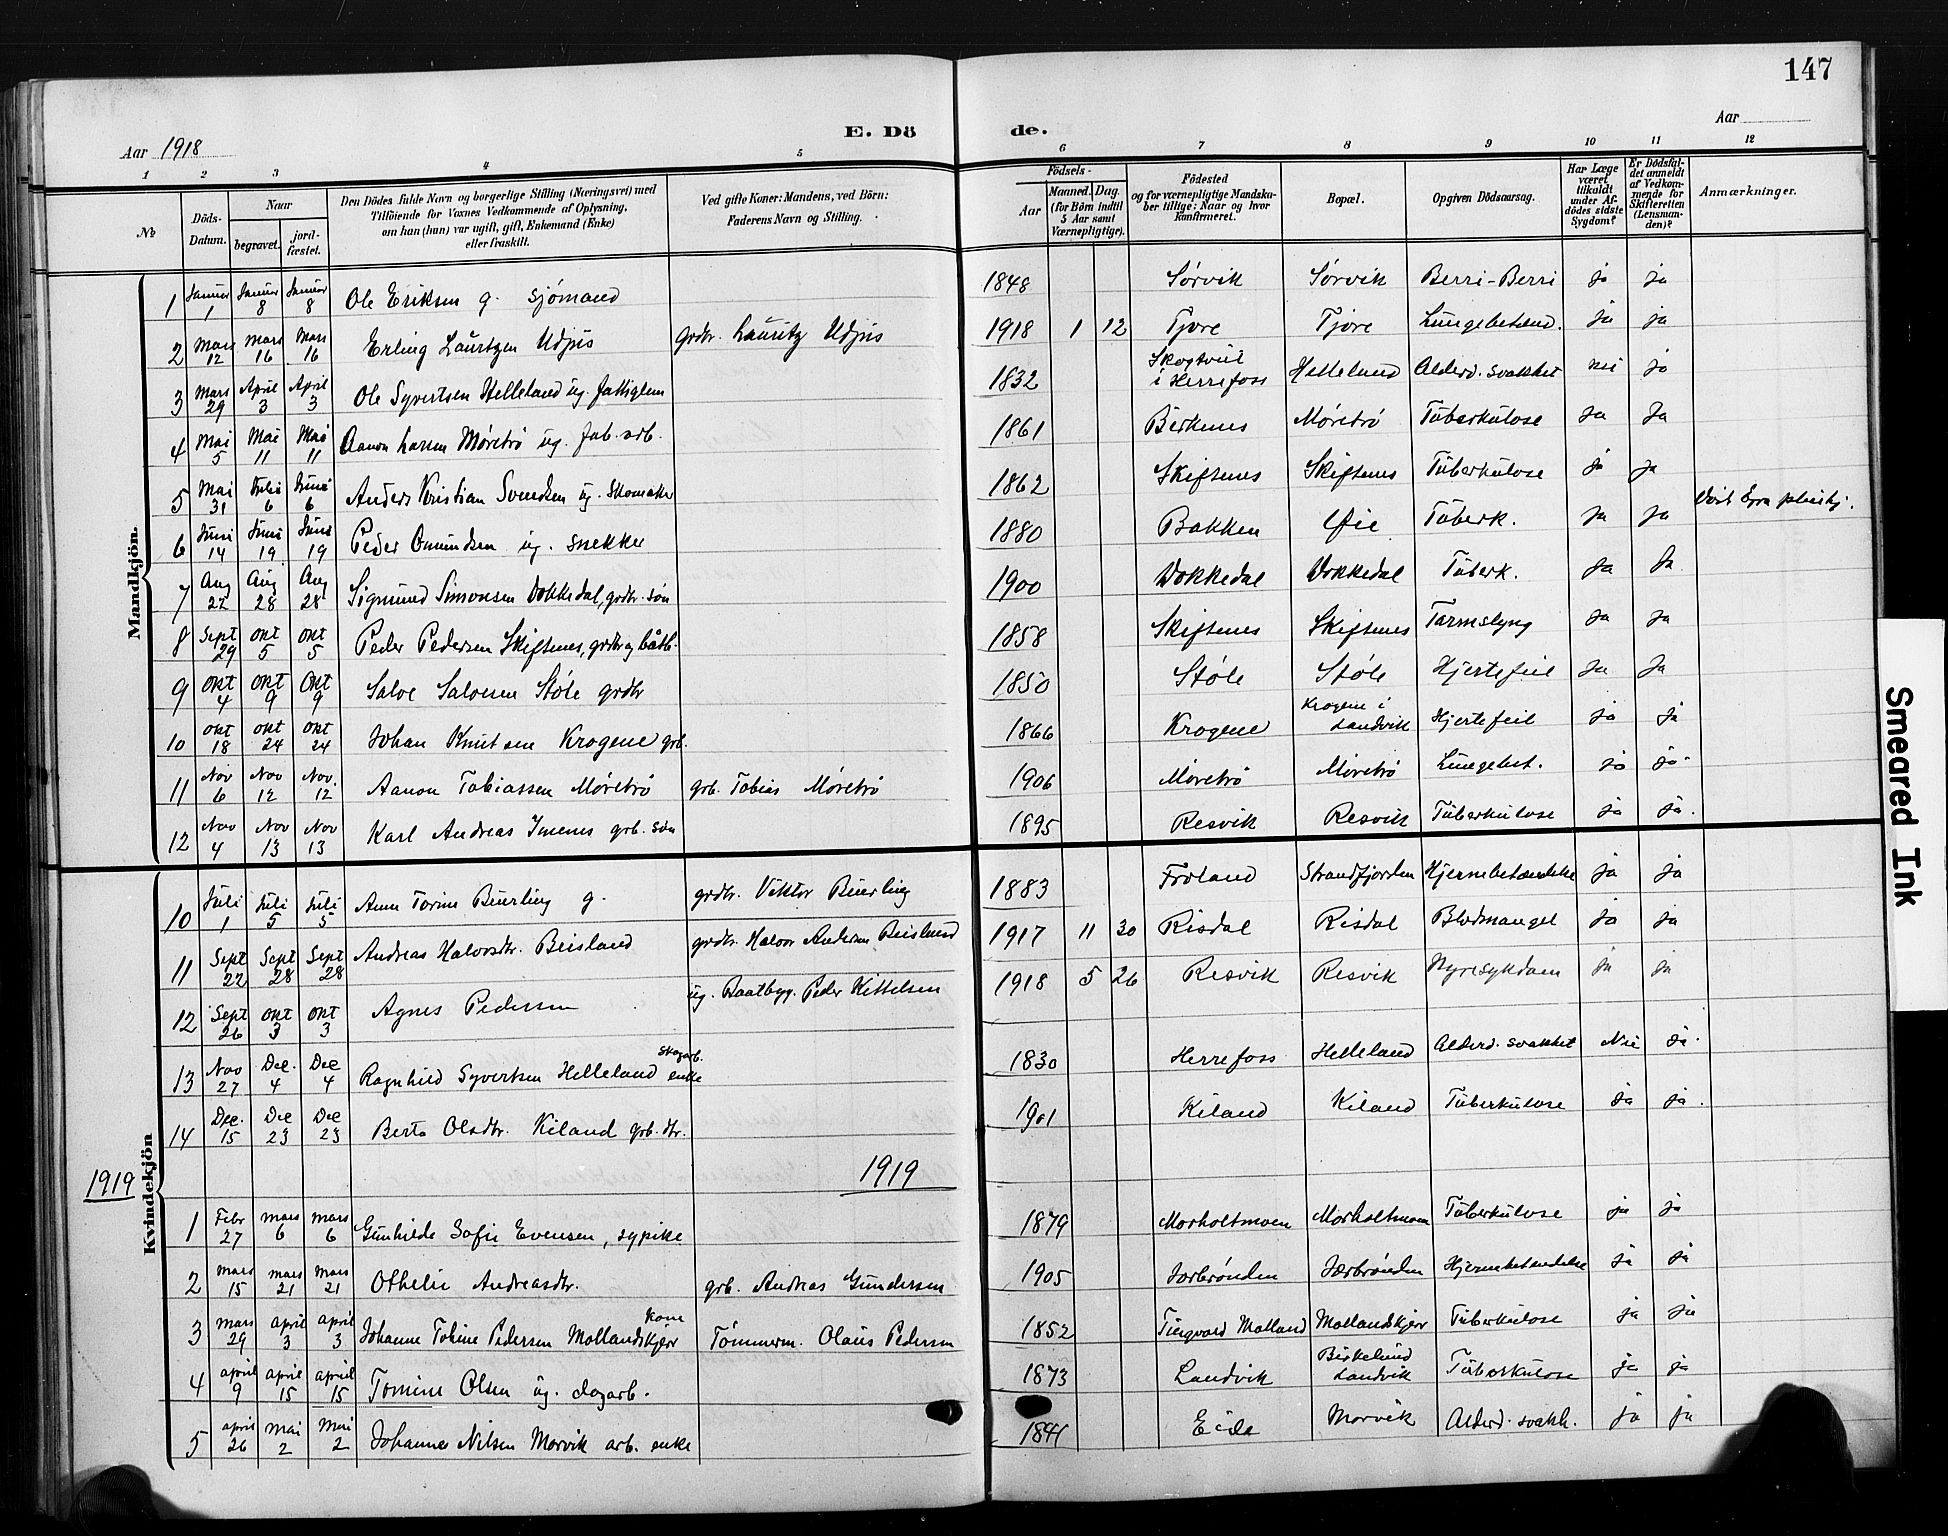 147
E. Dö de.
Aar 1918
Aar
1 2 3 4 5 6 7 8 9 10 11 12
№
Döds-Datum.
Naar
begravet.
jord-fæstet.
Den Dödes fulde Navn og borgerlige Stilling (Næringsvei) med
Tilföiende for Voxnes Vedkommende af Oplysning,
om han (hun) var ugift, gift, Enkemand (Enke)
eller fraskilt.
Ved gifte Koner: Mandens, ved Börn:
Faderens Navn og Stilling.
Födsels-
Aar
Maaned. Dag.
(for Börn indtil
5 Aar samt
Værnepligtige).
Födested
og for værnepligtige Mandska-
ber tillige: Naar og hvor
konfirmeret.
Bopæl.
Opgiven Dödsaarsag.
Har Læge
været
tilkaldt
under Af-
dödes sidste
Sygdom?
Er Dödsfal-
det anmeldt
af Vedkom-
mende for
Skifteretten
(Lensman-
den)?
Anmærkninger.
Mandkjön.
1 Januar 1 Januar 8 Januar 8 Ole Eriksen g. sjømand 1848 Sørvik Sørvik Berri-Berri ja ja
2 Mars 12 Mars 16 Mars 16 Erling Lauritzen Udjus grdbr. Lauritz Udjus 1918 1 12 Tjore Tjore Lungebetænd. ja ja
3 Mars 29 April 3 April 3 Ole Syvertsen Helleland ug. fattiglem 1832 i Herrefoss Helleland Alderd. svakhet nei ja
4 Mai 5 Mai 11 Mai 11 Aanon Larsen Møretrø ug. fab. arb. 1861 Birkenes Møretrø Tuberkulose ja ja
5 Mai 31 6 Juni 6 Anders Kristian Svendsen ug. Skomaker 1862 Skiftenes Skiftenes Tuberkulose ja ja
6 Juni 14 Juni 19 Juni 19 Peder Omundsen ug. snekker 1880 Bakken Øie Tuberk. ja ja
7 Aug 22 Aug 28 Aug 28 Sigmund Simonsen Dokkedal, grdbr. søn 1900 Dokkedal Dokkedal Tuberk. ja ja
8 Sept 29 Okt 5 Okt 5 Peder Pedersen Skiftenes, grdbr og båtb. 1858 Skiftenes Skiftenes Tarmslyng ja ja
9 Okt 4 Okt 9 Okt 9 Salve Salvesen Støle grdbr 1850 Støle Støle Hjertefeil ja ja
10 Okt 18 Okt 24 Okt 24 Johan Knutsen Krogene grb. 1866 Krogene Krogene i Landvik Hjertefeil ja ja
11 Nov 6 Nov 12 Nov. 12 Aanon Tobiassen Møretrø grb. Tobias Møretrø 1906 Møretrø Møretrø Lungebet. ja ja
12 Nov 4 Nov 13 Nov 13 Karl Andreas Imenes grb. søn 1895 Resvik Resvik Tuberkulose ja ja.
Kvindekjön
10 Juli 1 Juli 5 Juli 5 Anne Torine Beurling g. grdbr. Viktor Beurling 1883 Froland Strandfjorden Hjernebetændelse ja ja
11 Sept 22 Sept 28 Sept 28 Andreas Halvorsdtr. Beisland grdbr. Halvor Andersen Beisland 1917 11 30 Risdal Risdal Blodmangel ja ja
12 Sept 26 Okt 3 Okt 3 Agnes Pedersen ug. Baatbyg. Peder Kittelsen 1918 5 26 Resvik Resvik Nyresykdom ja ja
13 Nov 27 Dec. 4 Dec 4 Ragnhild Syvertsen Helleland skogarb. enke 1830 Herrefoss Helleland Alderd. svakhet Nei ja.
14 Dec. 15 Dec 23 Dec 23 Berta Olsdtr. Kiland grb. dtr. 1901 Kiland Kiland Tuberkulose ja ja.
1919 1919
1 Febr 27 Mars 6 Mars 6 Gunhilde Sofie Evensen, sypike 1879 Morholtmoen Morholtmoen Tuberkulose ja ja
2 Mars 15 Mars 21 Mars 21 Othelie Andreasdtr. grb. Andreas Gundersen 1905 Jorbrønden Jorbrønden Hjernebetændelse ja ja
3 Mars 29 April 3 April 3 Johanne Tobine Pedersen Mollandskjær kone Tømmerm. Olaus Pedersen 1852 Molland Mollandskjær Tuberkulose ja ja
4 April 9 April 15 April 15 Tomine Olsen ug. dagarb. 1873 Landvik Birkelund Landvik Tuberkulose ja ja
5 April 26 Mai 2 Mai 2 Johanne Nilsen Morvik arb. enke 1841 Eide Morvik Alderd. svakh. ja ja
Smeared Ink